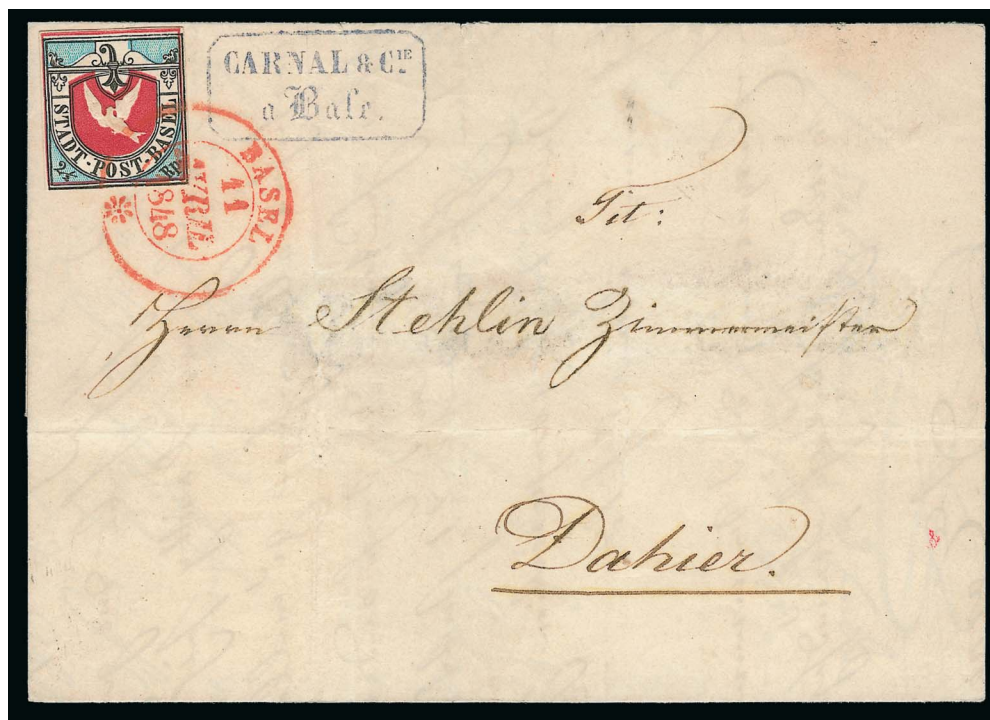 STADT-POST-BASEL
2½ Rp.
CARNAL & Cᴵᴱ
a Basle.
BASEL
11
848
Tit:
Herrn Stehlin Zimmermeister
Dahier.